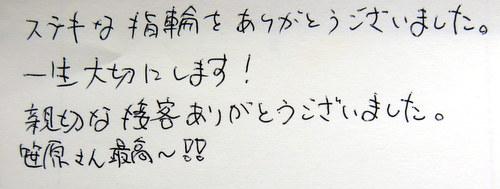 ステキな指輪をありがとうございました。
一生大切にします!
親切な接客ありがとうございました。
笹原さん最高〜!!